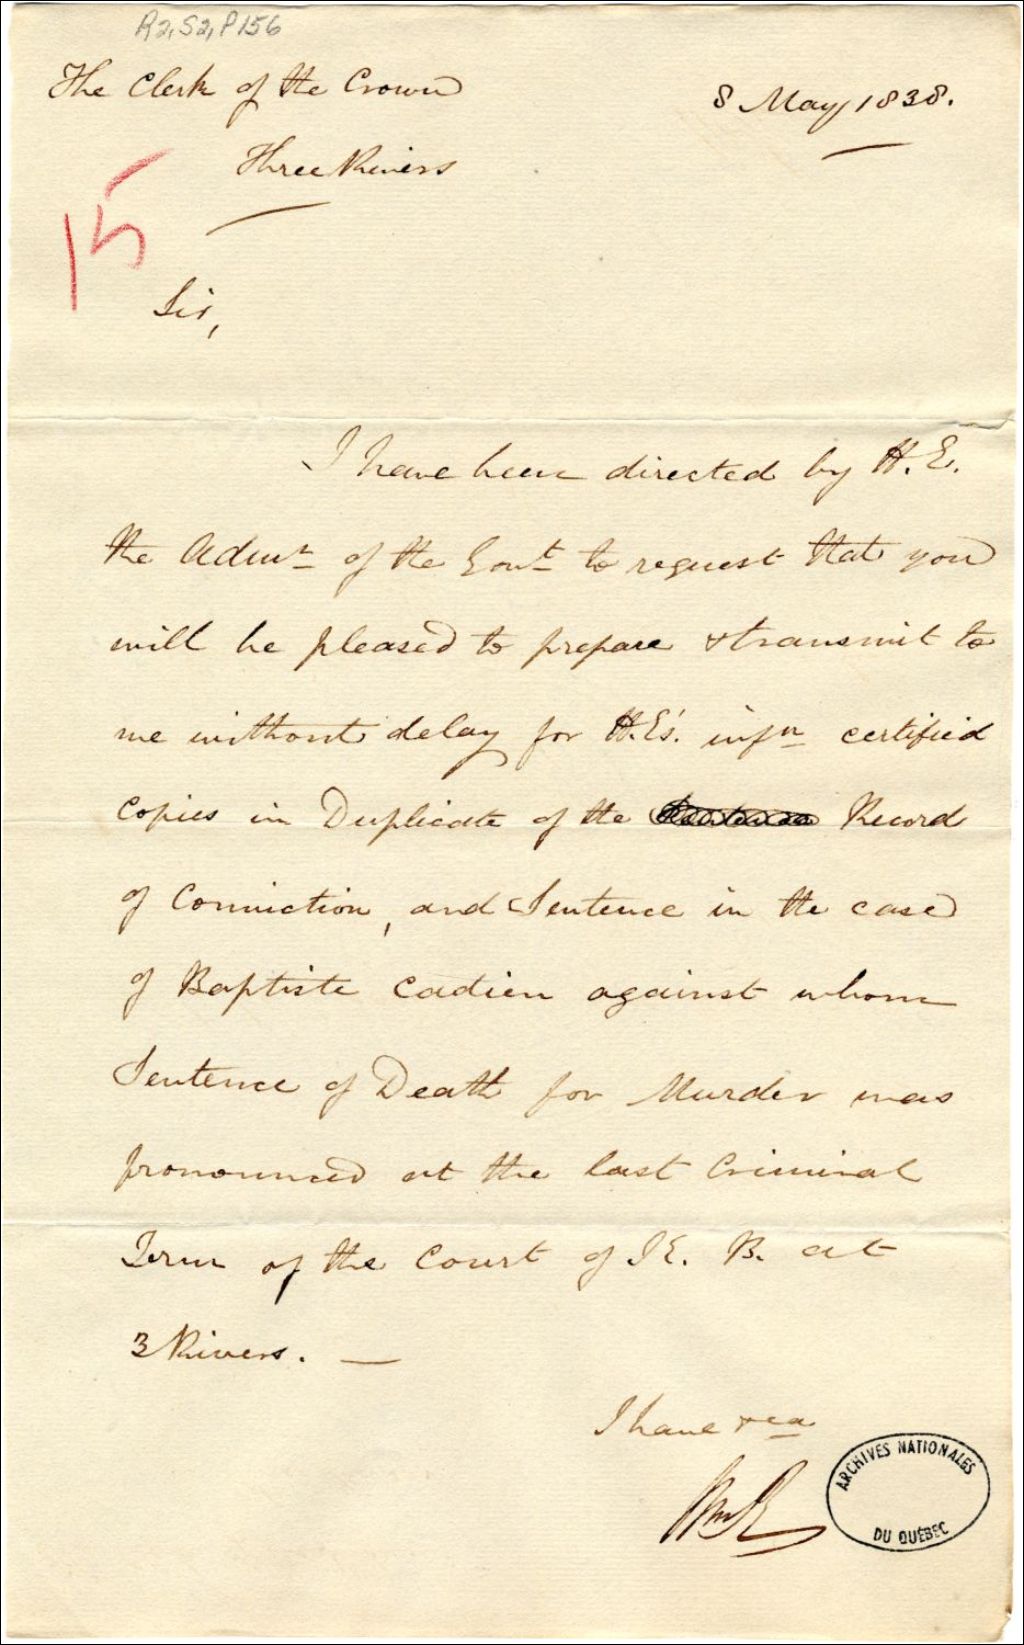 R2, S2, P156
The Clerk of the Crown
8 May 1838.
Three Rivers
15
Sir,
I have been directed by H.E.
the Admr of the Govt to request that you
will be pleased to prepare & transmit to
me without delay for H.E's. infn certified
Copies in Duplicate of the Record
of Conviction, and Sentence in the case
of Baptiste Cadien against whom
Sentence of Death for Murder was
pronounced at the last Criminal
Term of the Court of B. at
3 Rivers. —
I have &ca
ARCHIVES NATIONALES
DU QUÉBEC